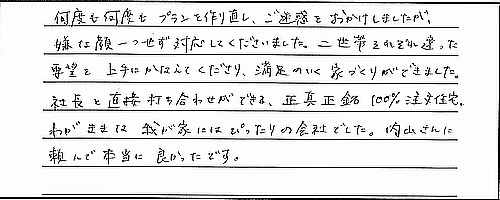 何度も何度も プランを作り直し、ご迷惑を おかけしましたが、
嫌な顔一つせず 対応してくださいました。二世帯それぞれ違った
要望を 上手にかなえてくださり、満足のいく 家づくりができました。
社長と直接打ち合わせができる、正真正銘 100%注文住宅。
わがままな 我が家にはぴったりの会社でした。内山さんに
頼んで本当に 良かったです。